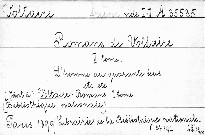 Voltaire nde I A 35535
Romans de Voltaire
I tome.
L'homme aux quarante écus
etc. etc.
Voltaire Romans I tome
(Bibliothèque nationale)
Paris 1879 Librairie de la Bibliothèque nationale.